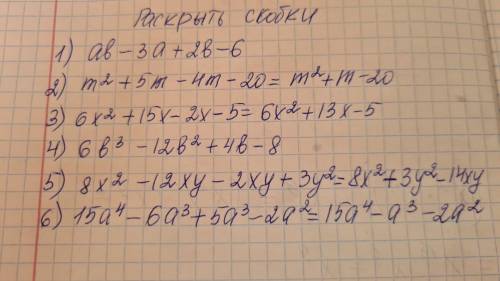 Раскрыть скобки
1) ab-3a+2b-6
2) m²+5m-4m-20=m²+m-20
3) 6x²+15x-2x-5=6x²+13x-5
4) 6b³-12b²+4b-8
5) 8x²-12xy-2xy+3y²=8x²+3y²-14xy
6) 15a⁴-6a³+5a³-2a²=15a⁴-a³-2a²